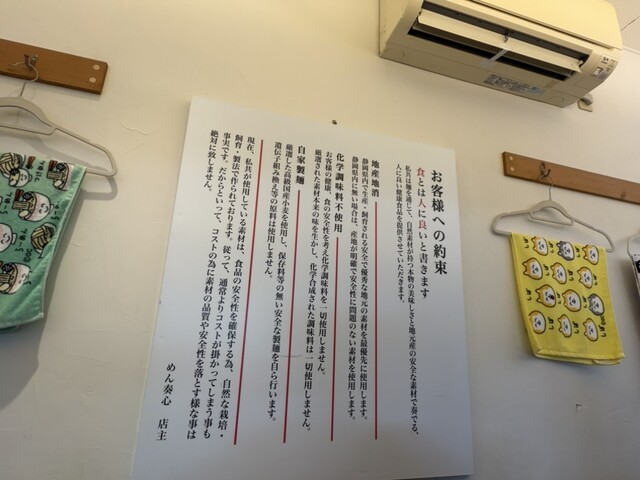 お客様への約束
食とは人に良いと書きます
私共は麺を通して、自然素材が持つ本物の美味しさと地元産の安全な素材で奏でる、
人に良い健康食品を提供させていただきます。
地産地消
静岡県内で生産・飼育される安全で優秀な地元の素材を最優先に使用します。
静岡県内に無い場合は、産地が明確で安全性に問題のない素材を使用します。
化学調味料不使用
お客様の健康、食の安全性を考え化学調味料を一切使用しません。
厳選された素材本来の味を生かし、化学合成された調味料は一切使用しません。
自家製麺
厳選した高級国産小麦を使用し、保存料等の無い安全な製麺を自ら行います。
遺伝子組み換え等の原料は使用しません。
現在、私共が使用している素材は、食品の安全性を確保する為、自然な栽培・
飼育・製法で作られております。従って、通常よりコストが掛かってしまう事も
事実です。だからといって、コストの為に素材の品質や安全性を落とす様な事は
絶対に致しません。
めん奏心 店主